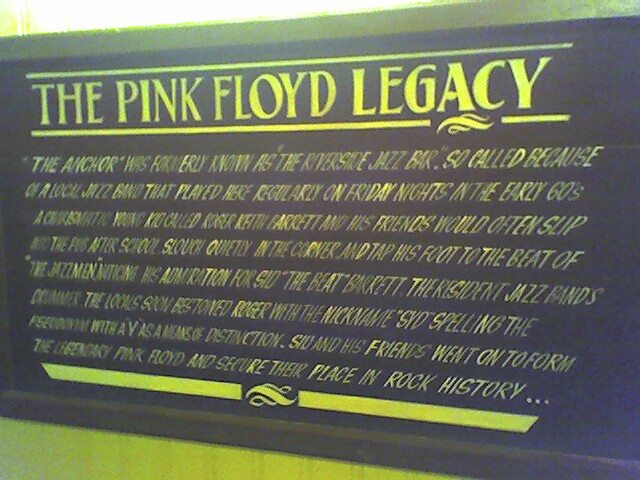 THE PINK FLOYD LEGACY
"THE ANCHOR" WAS FORMERLY KNOWN AS "THE RIVERSIDE JAZZ BAR". SO CALLED BECAUSE
OF A LOCAL JAZZ BAND THAT PLAYED HERE REGULARLY ON FRIDAY NIGHTS IN THE EARLY 60s
A CHARISMATIC YOUNG KID CALLED ROGER KEITH BARRETT AND HIS FRIENDS WOULD OFTEN SLIP
INTO THE PUB AFTER SCHOOL, SLOUCH QUIETLY IN THE CORNER AND TAP HIS FOOT TO THE BEAT OF
"THE JAZZMEN". NOTICING HIS ADMIRATION FOR SID "THE BEAT" BARRETT, THE RESIDENT JAZZ BANDS
DRUMMER, THE LOCALS SOON BESTONED ROGER WITH THE NICKNAME "SYD" SPELLING THE
PSEUDONYM WITH A Y AS A MEANS OF DISTINCTION. SYD AND HIS FRIENDS WENT ON TO FORM
THE LEGENDARY PINK FLOYD AND SECURE THEIR PLACE IN ROCK HISTORY...